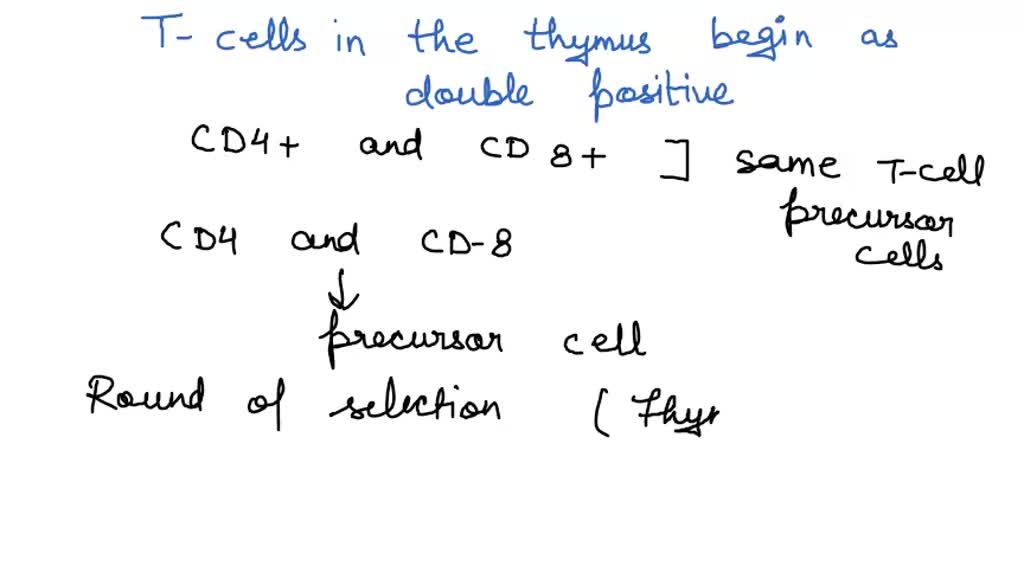 T-cells in the thymus begin as
double positive
CD4+ and CD 8+ ] same T-cell
precursor
cells
CD4 and CD-8
↓
precursor cell
Round of selection ( Thy